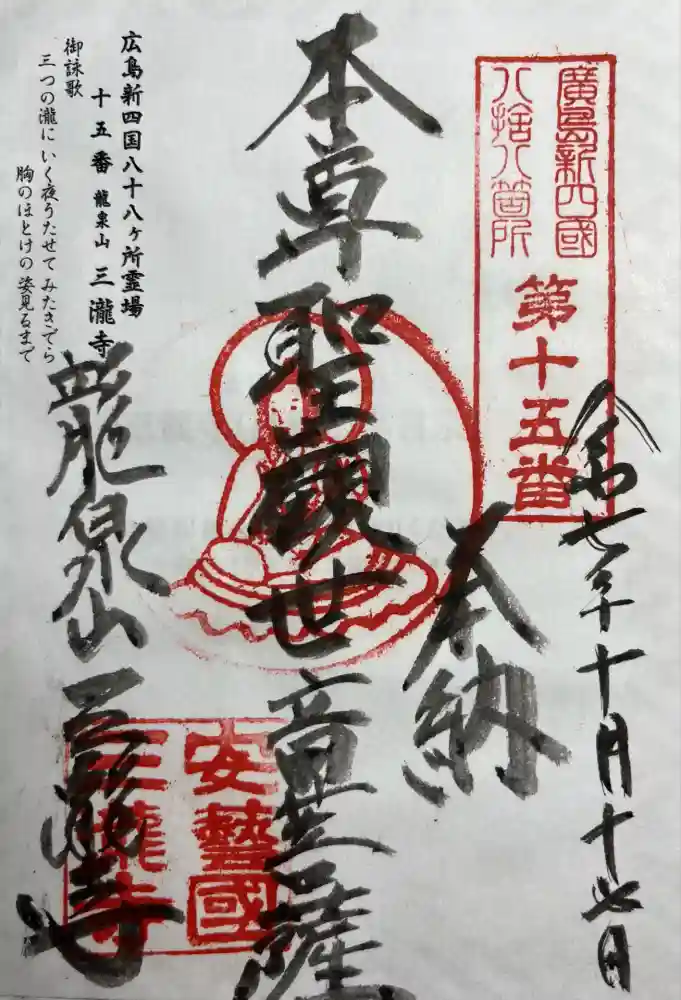 廣島新四國
八拾八箇所
第十五番
令和七年十月十七日
奉納
本尊聖観世音菩薩
安藝國
三瀧寺
龍泉山三瀧寺
広島新四国八十八ヶ所霊場
十五番 龍泉山 三瀧寺
御詠歌
三つの瀧に いく夜うたせて みたきでら
胸のほとけの 姿見るまで